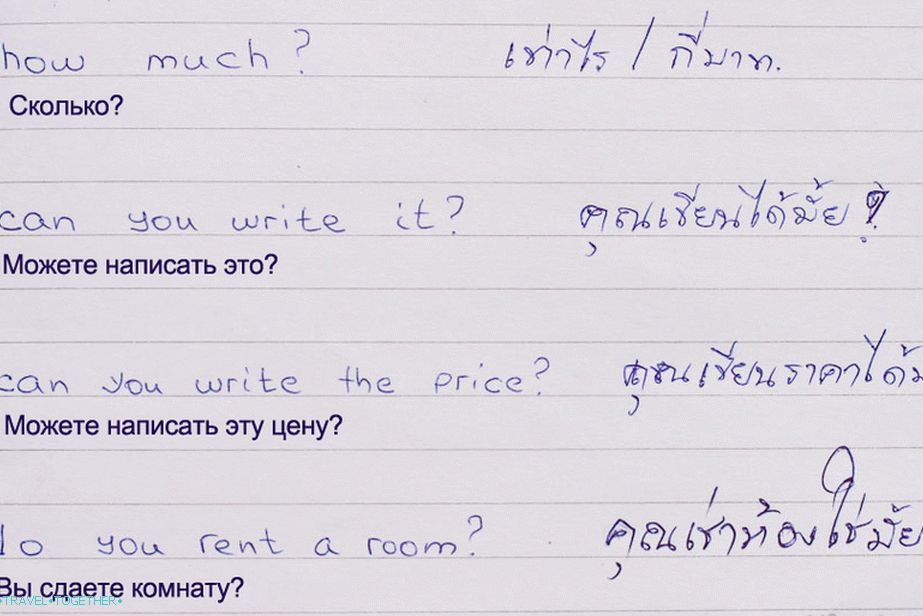 how much? เท่าไร / กี่บาท.
Сколько?
can you write it? คุณเขียนได้มั้ย ?
Можете написать это?
can you write the price? คุณเขียนราคาได้
Можете написать эту цену?
do you rent a room? คุณเช่าห้องใช่มั้ย
Вы сдаете комнату?
•TRAVEL•TOGETHER•